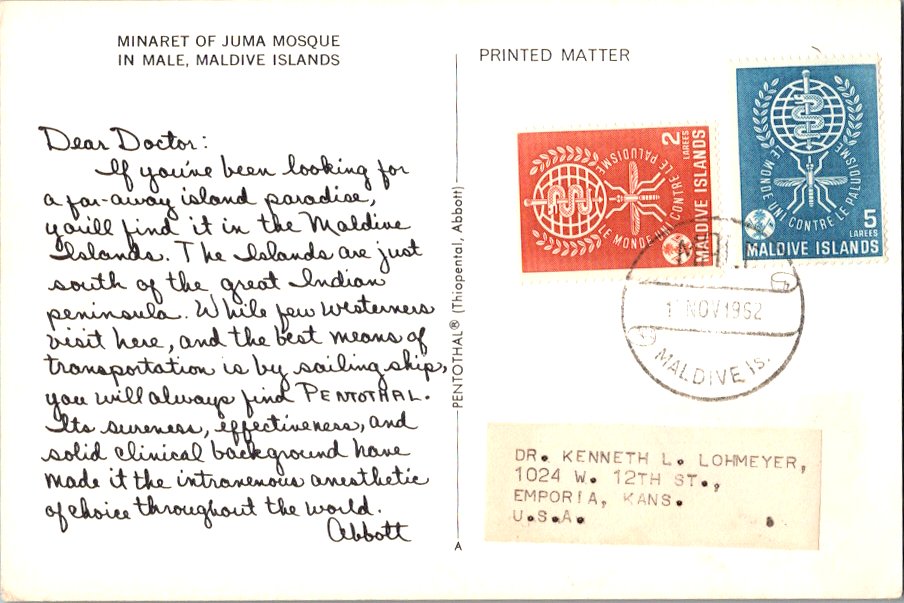 MINARET OF JUMA MOSQUE
IN MALE, MALDIVE ISLANDS
Dear Doctor:
If you've been looking for
a far-away island paradise,
you'll find it in the Maldive
Islands. The Islands are just
south of the great Indian
peninsula. While few westerners
visit here, and the best means of
transportation is by sailing ship,
you will always find PENTOTHAL.
Its sureness, effectiveness, and
solid clinical background have
made it the intravenous anesthetic
of choice throughout the world.
Abbott
PENTOTHAL® (Thiopental, Abbott)
A
PRINTED MATTER
2
LAREES
MALDIVE ISLANDS
LE MONDE UNI CONTRE LE PALUDISME
LE MONDE UNI CONTRE LE PALUDISME
5
LAREES
MALDIVE ISLANDS
NOV 1962
MALDIVE IS.
DR. KENNETH L. LOHMEYER,
1024 W. 12TH ST.,
EMPORIA, KANS.
U.S.A.